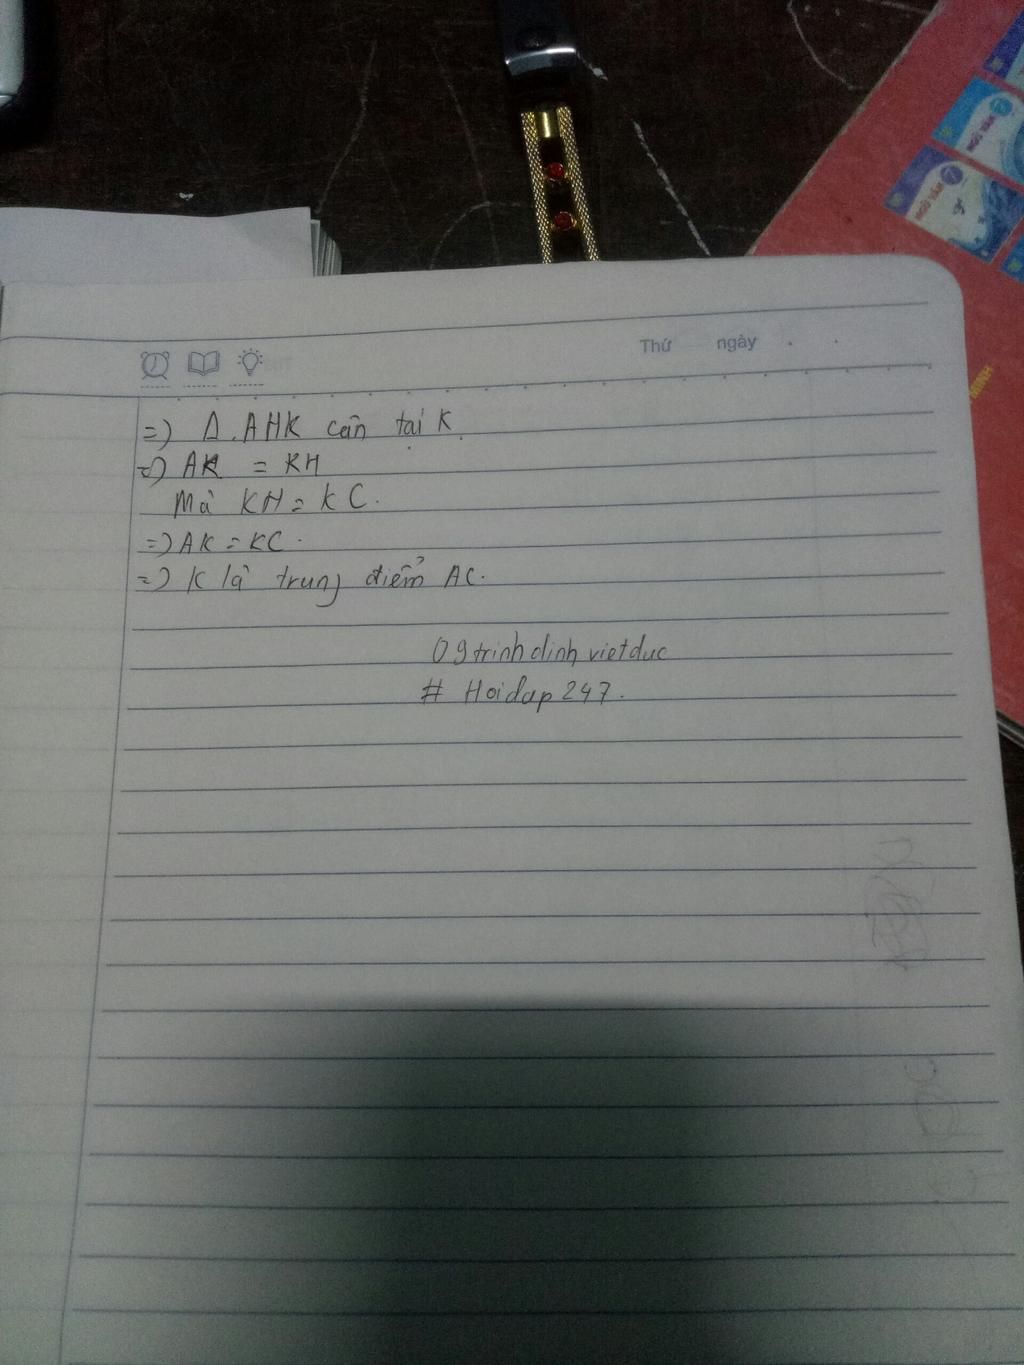 Thứ ngày
=) Δ.AHK cân tại K.
=) AK = KH
Mà KH = KC.
=) AK = KC.
=) K là trung điểm AC.
09trinhdinhvietduc
# Hoidap247.
NGỮ VĂN
NGỮ VĂN
MINH